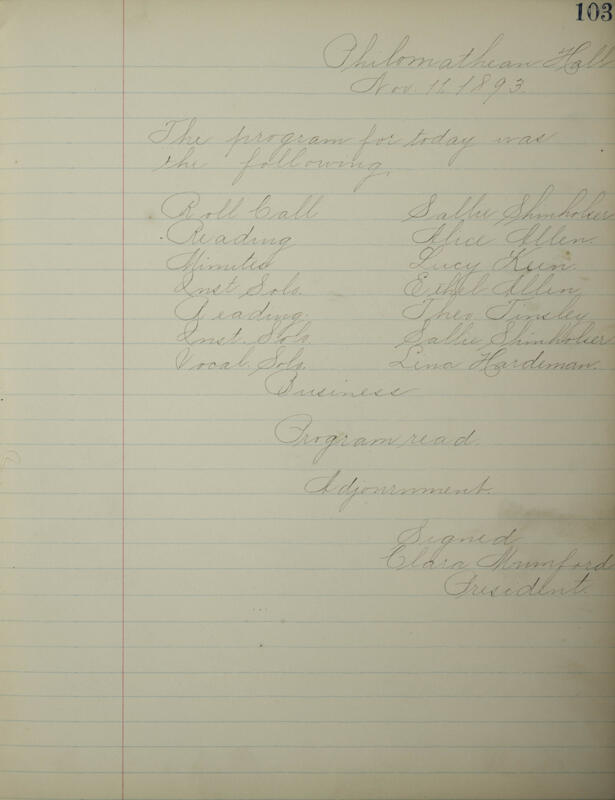 103
Philomathean Hall
Nov. 11, 1893.
The program for today was
the following,
Roll Call Sallie Shinholser
Reading Alice Allen.
Minutes Lucy Keen.
Inst Solo. Ethel Allen
Reading. Theo. Tinsley
Inst. Solo. Sallie Shinholser
Vocal Solo. Lina Hardeman.
Business
Program read.
Adjournment.
Signed
Clara Mumford
President.